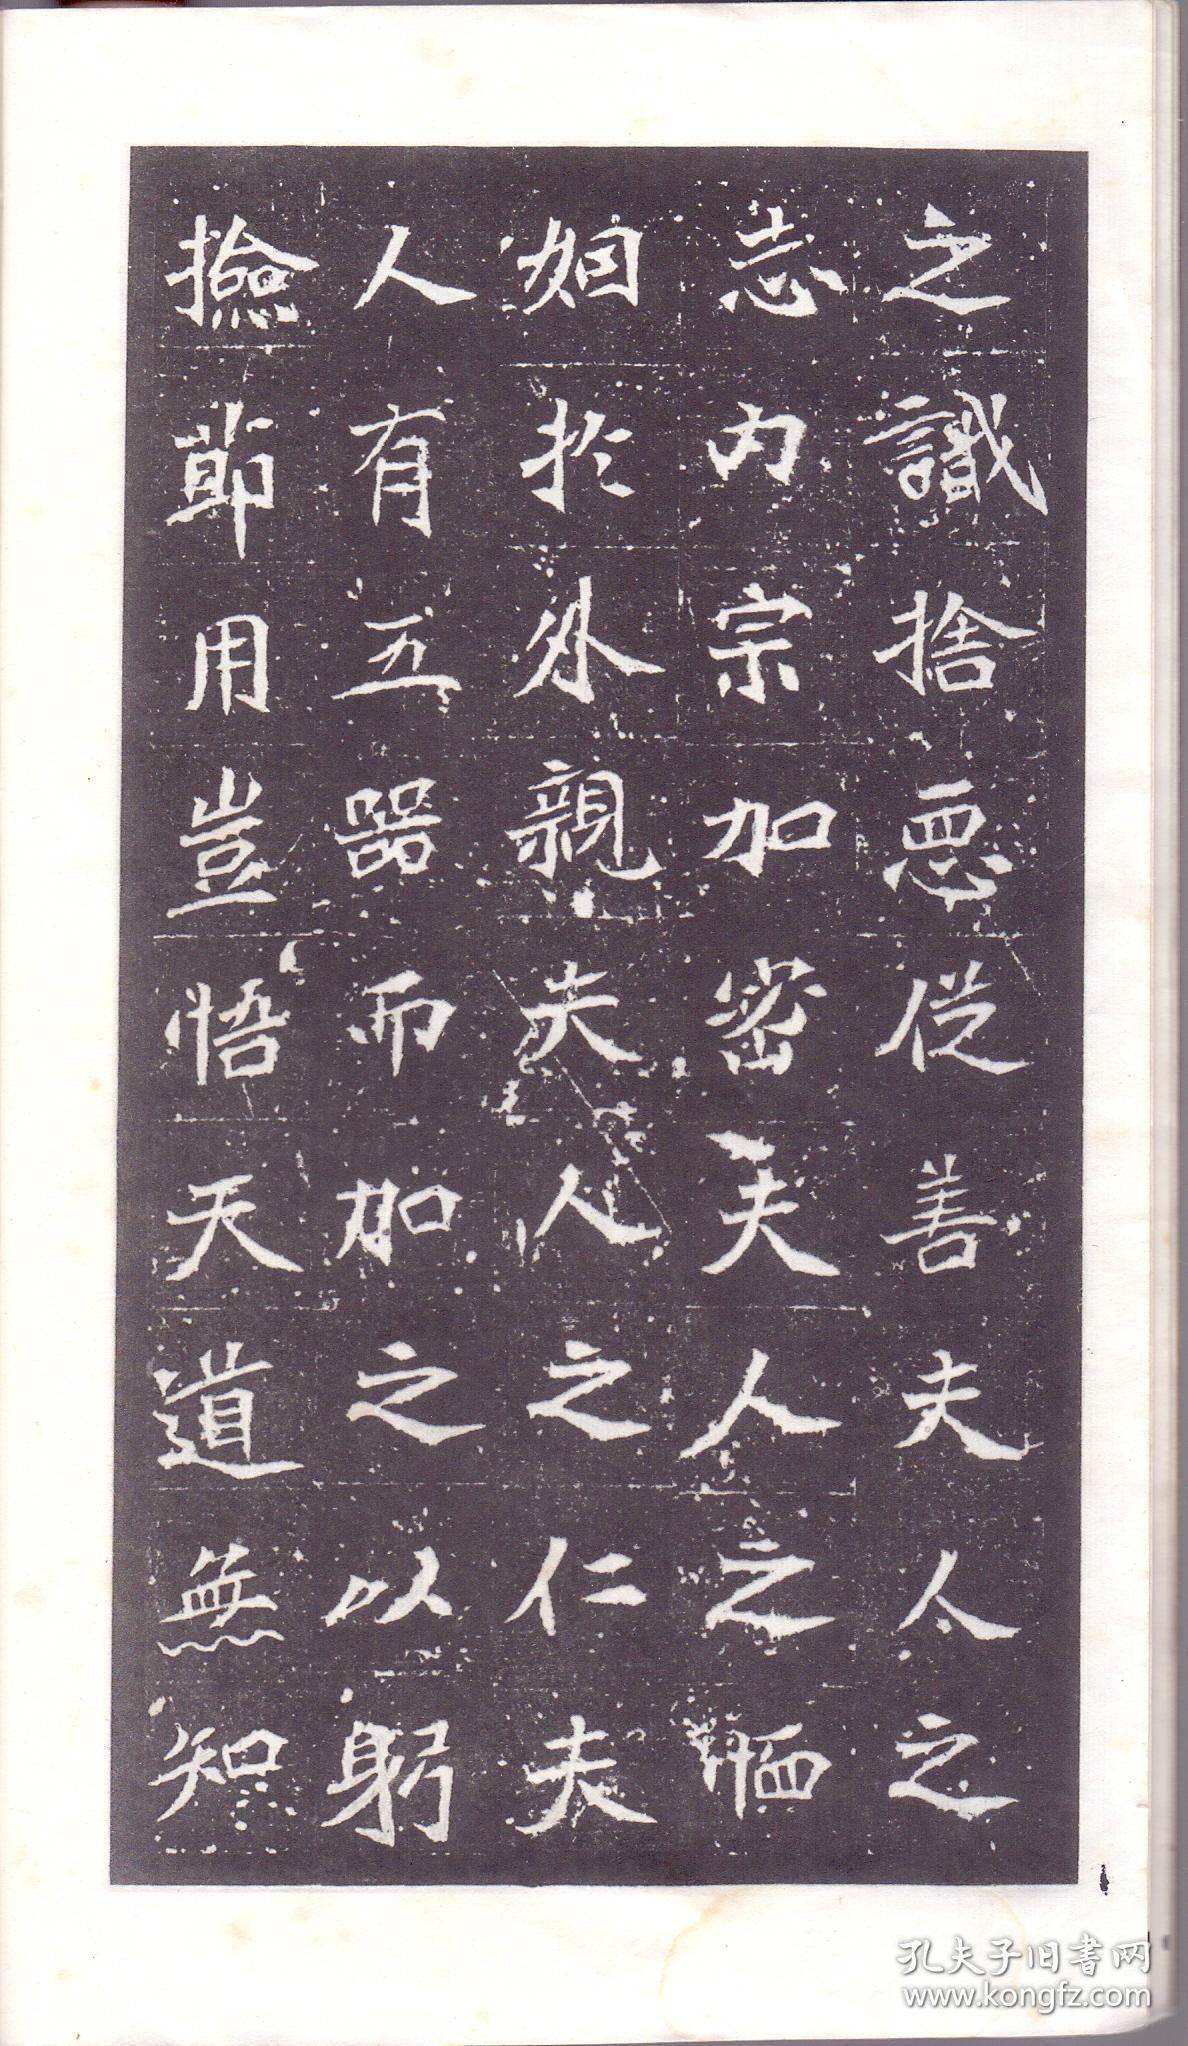 之識捨惡從善夫人之
志内宗加密夫人之恤
姻於外親夫人之仁夫
人有五器而加之以躬
撿節用豈悟天道無知
孔夫子旧書网
www.kongfz.com